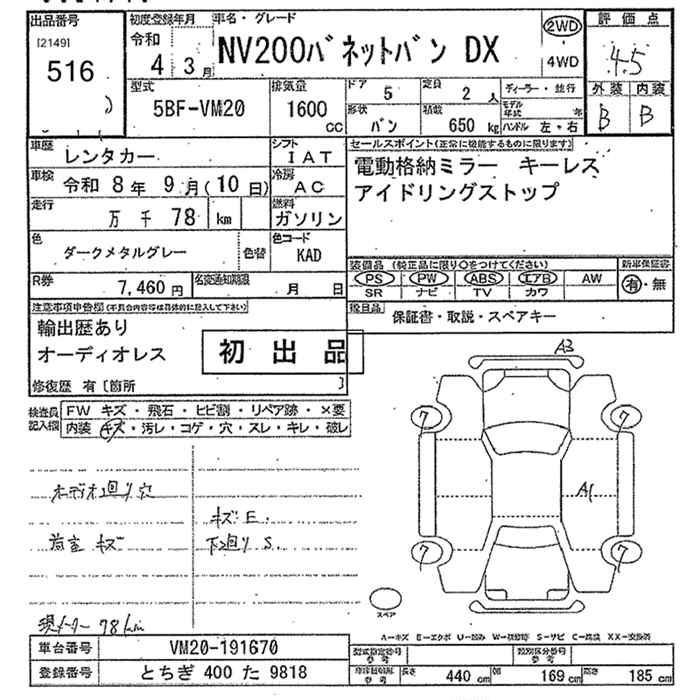 出品番号 初度登録年月 車名・グレード 評価点
[2149] 令和 NV200バネットバン DX 2WD 4.5
516 4 3月 4WD 外装 内装
B B
型式 排気量 ドア 5 定員 2人 ディーラー・並行
5BF-VM20 1600cc 形状 バン 積載 650kg モデル年式 年
ハンドル 左・右
車歴 レンタカー シフト IAT セールスポイント(正常に機能するものに限ります)
車検 令和 8年 9月(10日) 冷房 AC 電動格納ミラー キーレス
走行 万 千 78 km 燃料 ガソリン アイドリングストップ
色 ダークメタルグレー 色替 色コード KAD
装備品(純正品に限り○をつけてください) 新車保証書
R券 7,460円 名変通知期限 月 日 PS PW ABS エアB AW 有・無
SR ナビ TV カワ
注意事項申告欄(不具合内容等は具体的に記入して下さい)
輸出歴あり 保証書・取説・スペアキー
オーディオレス 初出品
修復歴 有〔箇所 〕
検査員記入欄 FW キズ・飛石・ヒビ割・リペア跡・×要
内装 キズ・汚レ・コゲ・穴・スレ・キレ・破レ
A3
7 7
A1
7 7
オーディオ回り穴
キズE
荷室 キズ 下回りS
スペア
現メーター 78km
A―キズ E―エクボ U―凹み W―補修跡 S―サビ C―腐蝕 XX―交換済
車台番号 VM20-191670 型式指定番号 参考 類別区分番号 参考
登録番号 とちぎ 400 た 9818 参考 長さ 440cm 幅 169cm 高さ 185cm